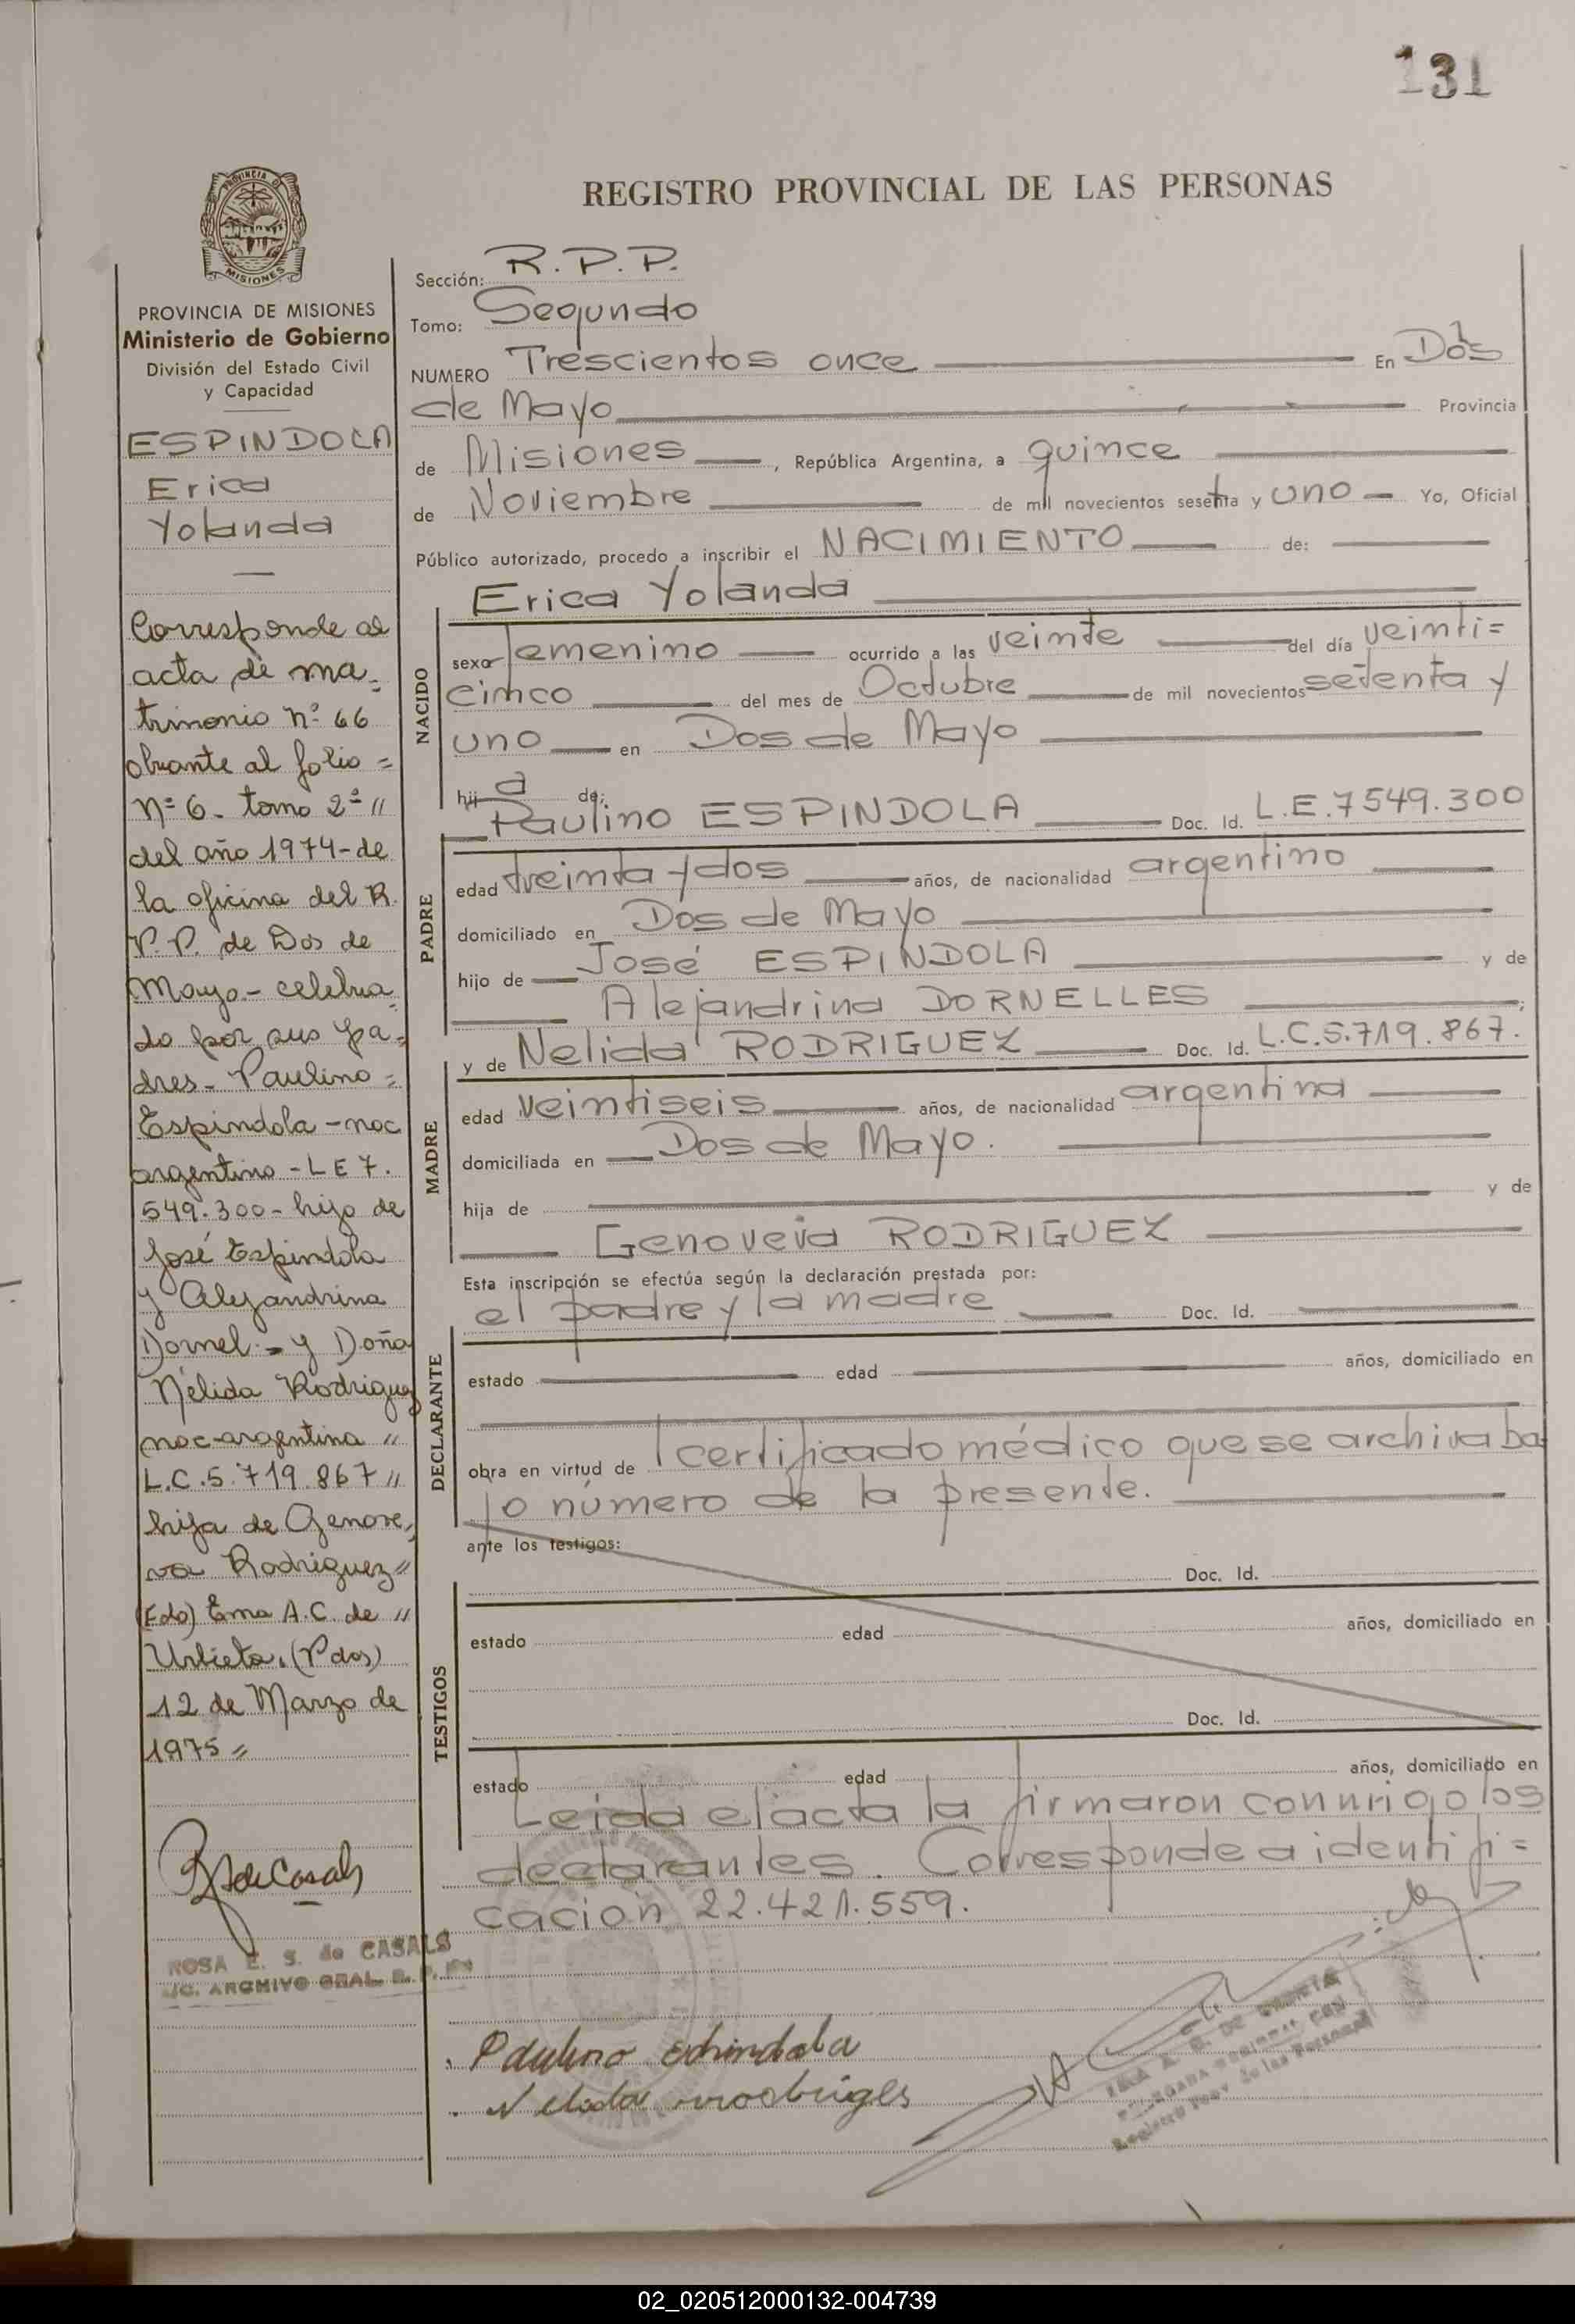 131
REGISTRO PROVINCIAL DE LAS PERSONAS
PROVINCIA DE MISIONES
Ministerio de Gobierno
División del Estado Civil
y Capacidad
ESPINDOLA
Erica
Yolanda
Corresponde al
acta de ma=
trimonio nº 66
obrante al folio =
nº 6. tomo 2º "
del año 1974-de
la oficina del R.
P.P. de Dos de
Mayo.- celebra
do por sus pa=
dres- Paulino =
Espindola - nac
argentino - L E 7.
549.300- hijo de
José Espindola
y Alejandrina
Dornel.- y Doña
Nélida Rodriguez
nac-argentina "
L.C.5.719.867 "
hija de Genove,
va Rodriguez "
(Fdo) Ema A.C. de "
Urbieta. (Pdos)
12 de Marzo de
1975 =
ROSA E. S. de CASALS
ARCHIVO GRAL. R. P.
Sección: R.P.P.
Tomo: Segundo
NUMERO Trescientos once En Dos
de Mayo Provincia
de Misiones, República Argentina, a quince
de Noviembre de mil novecientos setenta y uno Yo, Oficial
Público autorizado, procedo a inscribir el NACIMIENTO de:
Erica Yolanda
NACIDO
sexo femenino ocurrido a las veinte del día veinti=
cinco del mes de Octubre de mil novecientos setenta y
uno en Dos de Mayo
hij a de:
Paulino ESPINDOLA Doc. Id. L.E.7549.300
PADRE
edad treinta y dos años, de nacionalidad argentino
domiciliado en Dos de Mayo
hijo de José ESPINDOLA y de
Alejandrina DORNELLES ;
y de Nelida RODRIGUEZ Doc. Id. L.C.5.719.867.
MADRE
edad veintiseis años, de nacionalidad argentina
domiciliada en Dos de Mayo.
hija de y de
Genoveva RODRIGUEZ
Esta inscripción se efectúa según la declaración prestada por:
el padre y la madre Doc. Id.
DECLARANTE
estado edad años, domiciliado en
obra en virtud de l certificado médico que se archiva ba
jo número de la presente.
ante los testigos:
Doc. Id.
TESTIGOS
estado edad años, domiciliado en
Doc. Id.
estado edad años, domiciliado en
Leida el acta la firmaron conmigo los
declarantes. Corresponde a identifi=
cación 22.421.559.
Paulino espindola
Nelida rrodriges
02_020512000132-004739